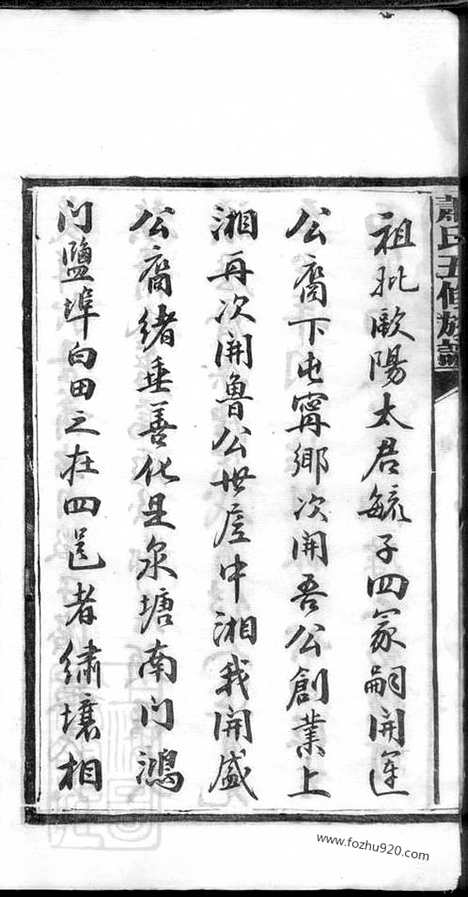 蕭氏五修族譜
祖妣歐陽太君毓子四冢嗣開運
公裔下屯寧鄉次開吾公創業上
湘再次開魯公世居中湘我開盛
公裔緒垂善化是泉塘南门鴻
门鹽埠白田之在四邑者繡壤相
www.fozhu920.com